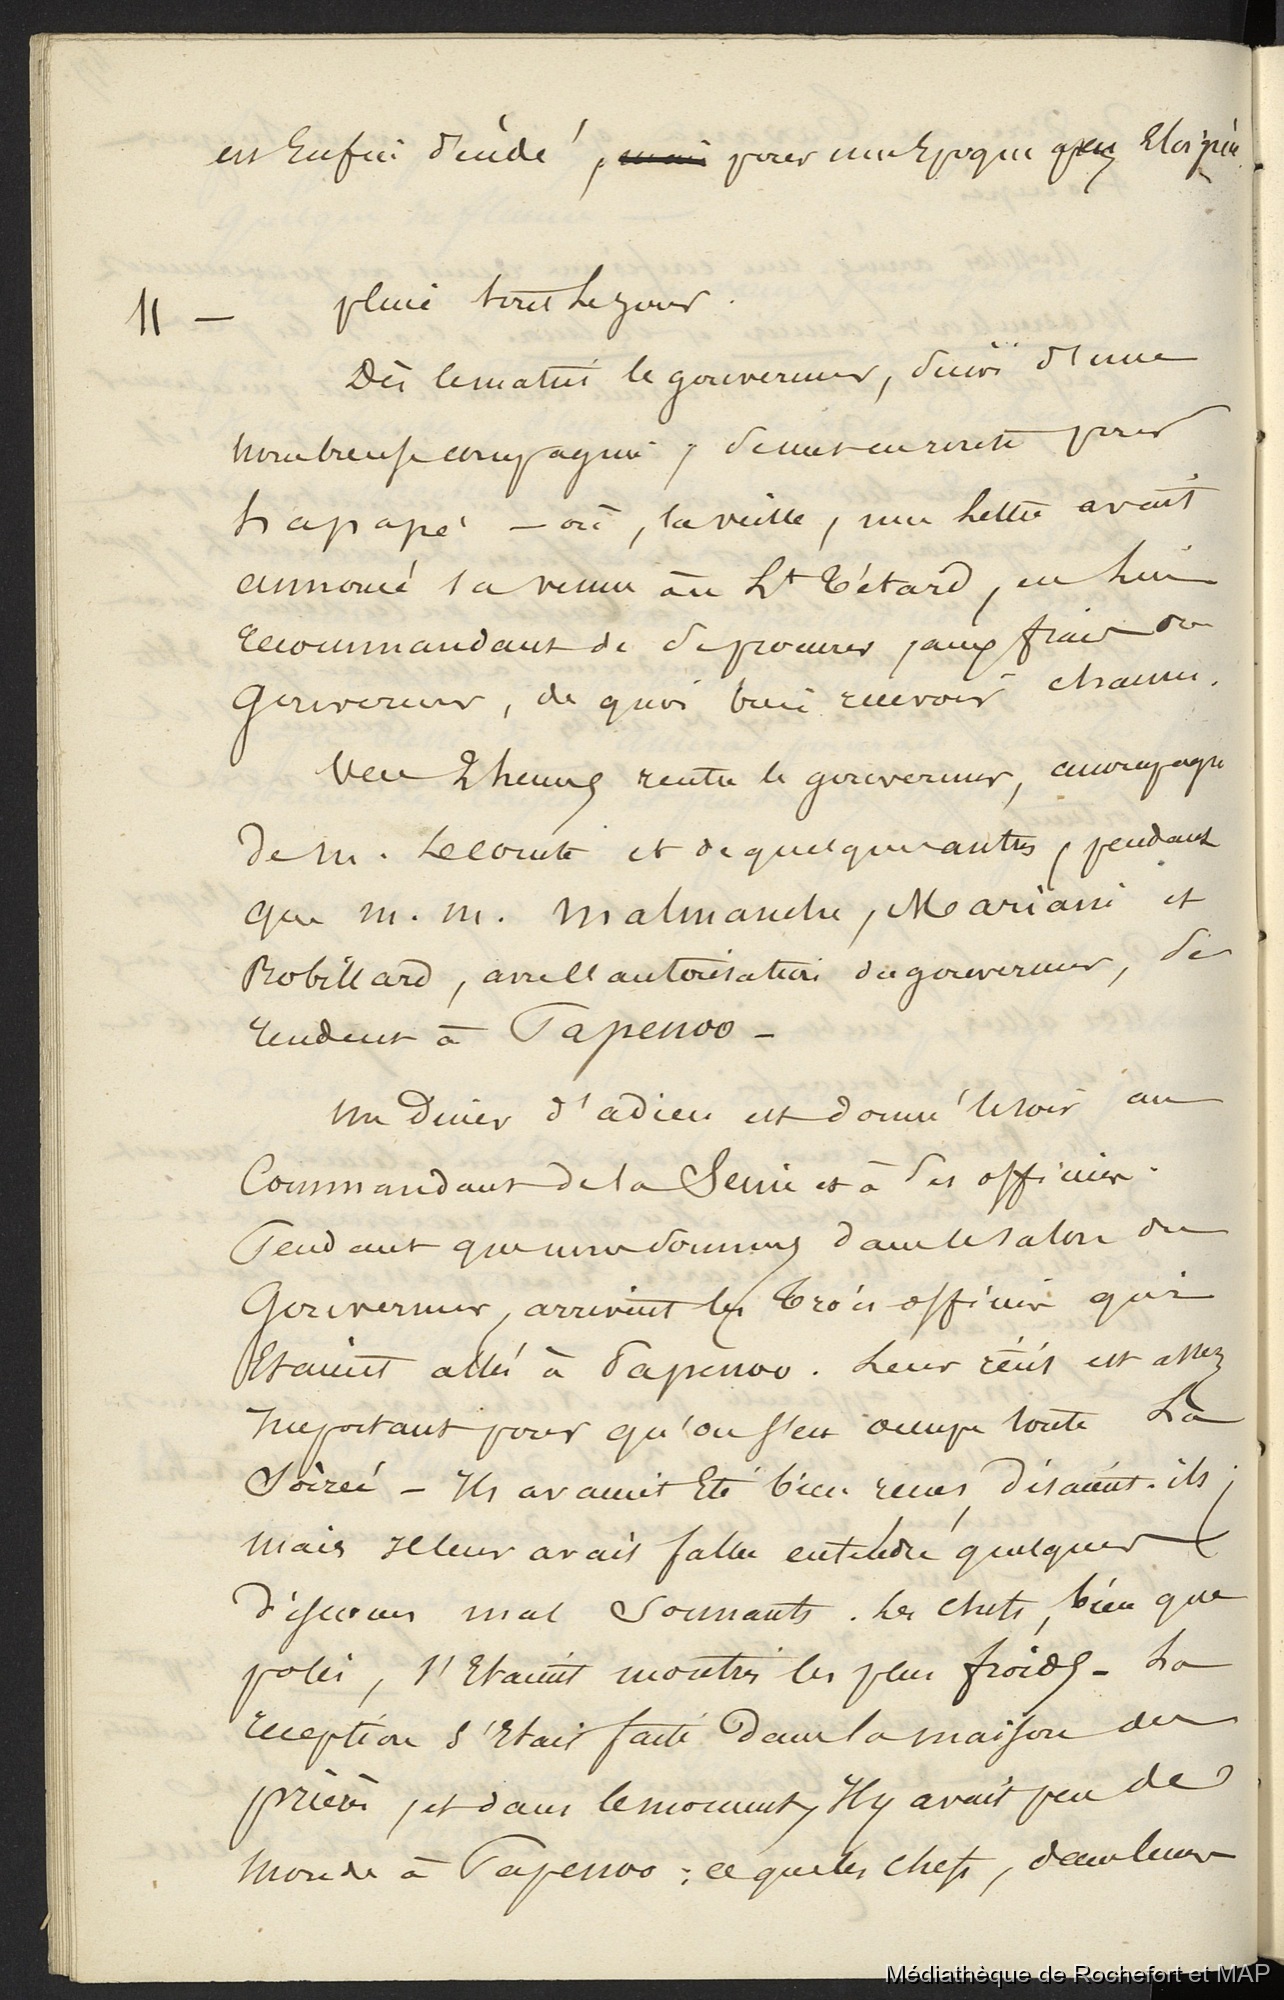 est enfin décidé, mais pour une Epoque peu Eloignée.
11 — pluie tout le jour.
Dès le matin le gouverneur, suivi d'une
nombreuse compagnie, se met en route pour
hapapé — où, la veille, une lettre avait
annoncé sa venue au Lt Tétard, en lui
Recommandant de se procurer, aux frais du
Gouverneur, de quoi bien recevoir chacun.
Vers 2 heures rentre le gouverneur, accompagné
de M. Lecomte et de quelques autres, pendant
que M. M. Malmanche, Mariani et
Robillard, avec l'autorisation du gouverneur, se
Rendent à Papenoo —
Un Diner d'adieu est donné le soir au
Commandant de la Seine et à ses officiers.
Pendant que nous sommes dans le salon du
Gouverneur, arrivent les trois officiers qui
Etaient allés à Papenoo. Leur récit est assez
Important pour qu'on s'en occupe toute La
Soirée — Ils avaient Eté bien reçus, disaient-ils,
mais Il leur avait fallu entendre quelques
discours mal Sonnants. Les chefs, bien que
polis, s'Etaient montrés les plus froids — La
Réception s'Etait faite Dans la maison des
prières, et dans le moment, Il y avait peu de
Monde à Papenoo : ce que les chefs, dans leurs
Médiathèque de Rochefort et MAP